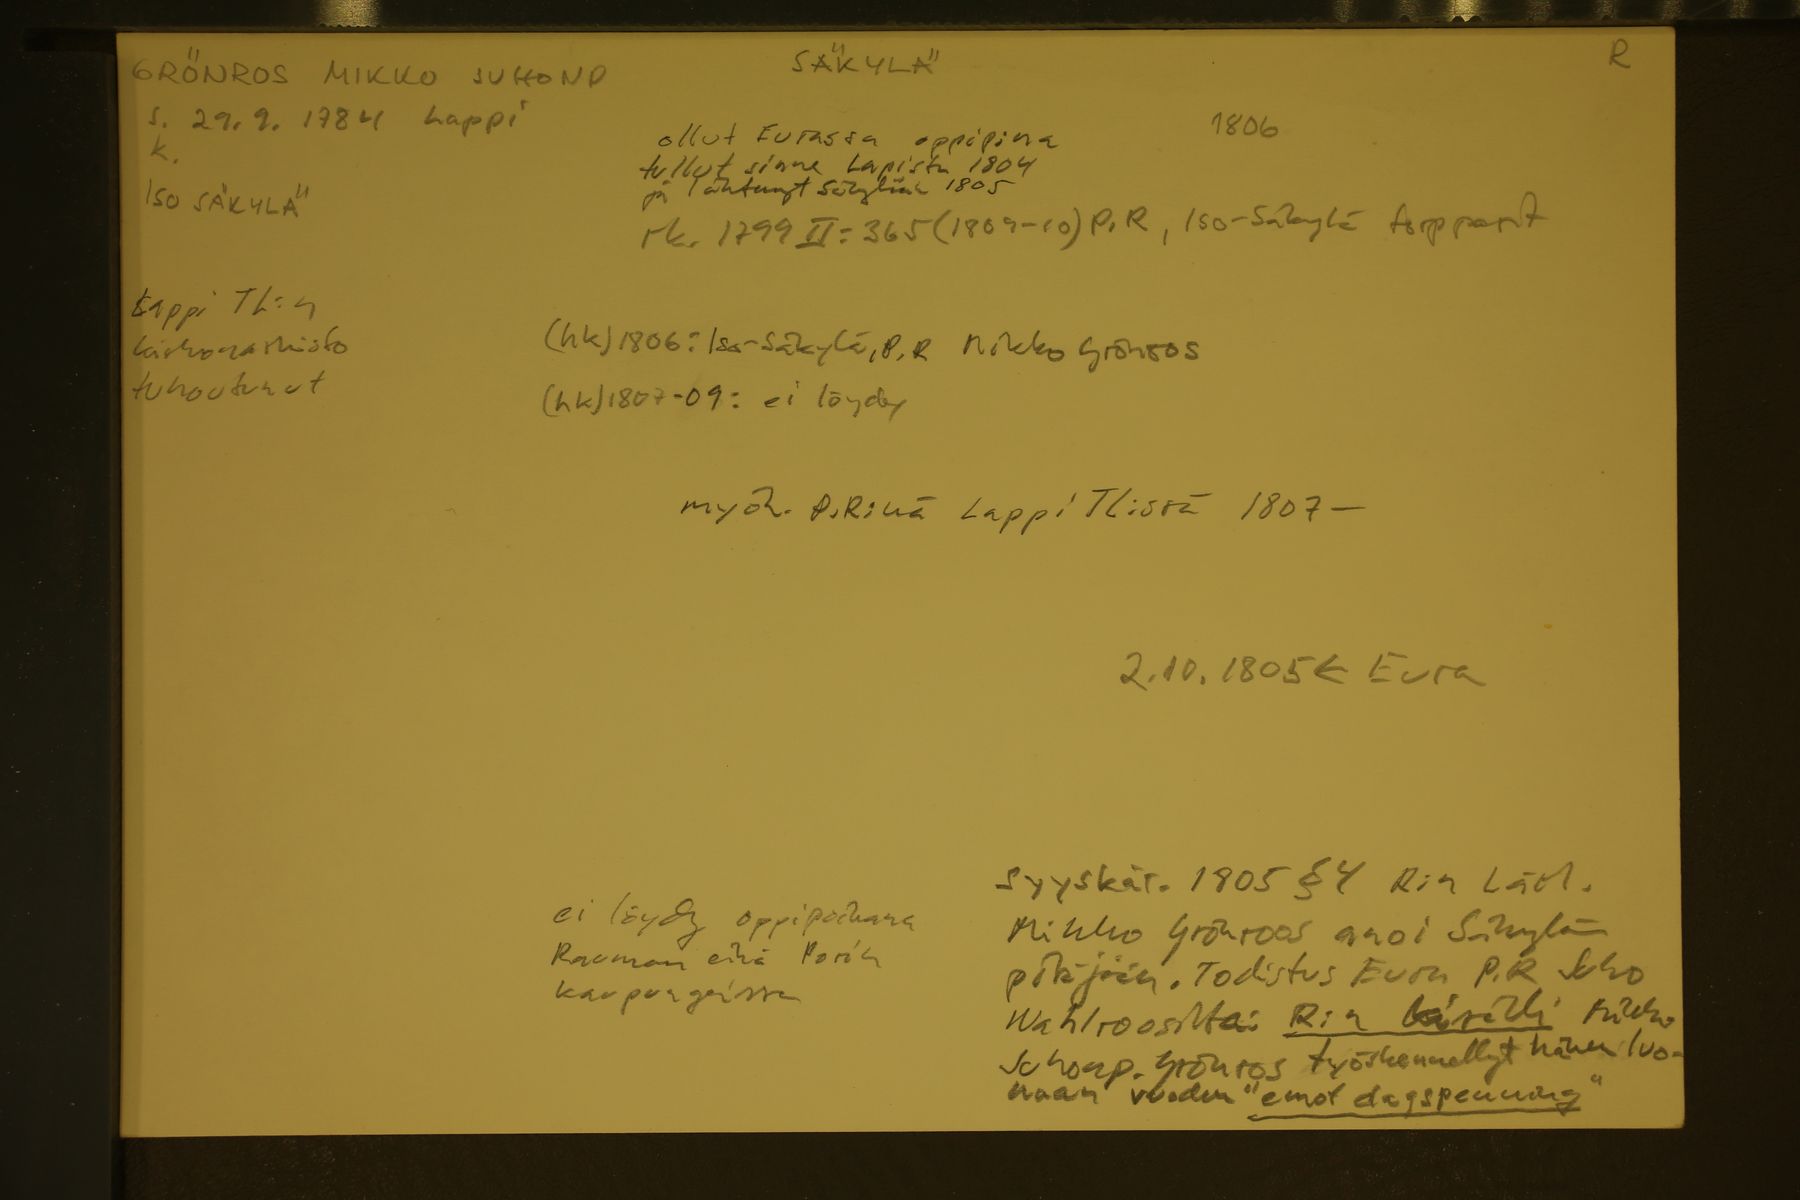 GRÖNROS MIKKO JUHONP
SÄKYLÄ
R
s. 29.9. 1784 Lappi
k.
1806
ollut Eurassa oppipina
tullut sinne Lapista 1804
ja lähtenyt Säkylään 1805
ISO SÄKYLÄ
rk. 1799 II: 365 (1809-10) P.R, Iso-Säkylä torpparit
Lappi Tl:n
kirkonarkisto
tuhoutunut
(hk) 1806: Iso-Säkylä, P.R Mikko Grönroos
(hk) 1807-09: ei löydy
myöh. P.R:nä Lappi Tl:ssä 1807—
2.10. 1805 ← Eura
ei löydy oppipoikana
Rauman eikä Porin
kaupungeissa
Syyskär. 1805 § 4 R:n
Mikko Grönroos anoi Säkylän
pitäjään. Todistus Euran P.R Juho
Wahlroosilta: R:n kisälli Mikko
Juhonp. Grönroos työskennellyt hänen luo-
naan vuoden "emot dagspenning"